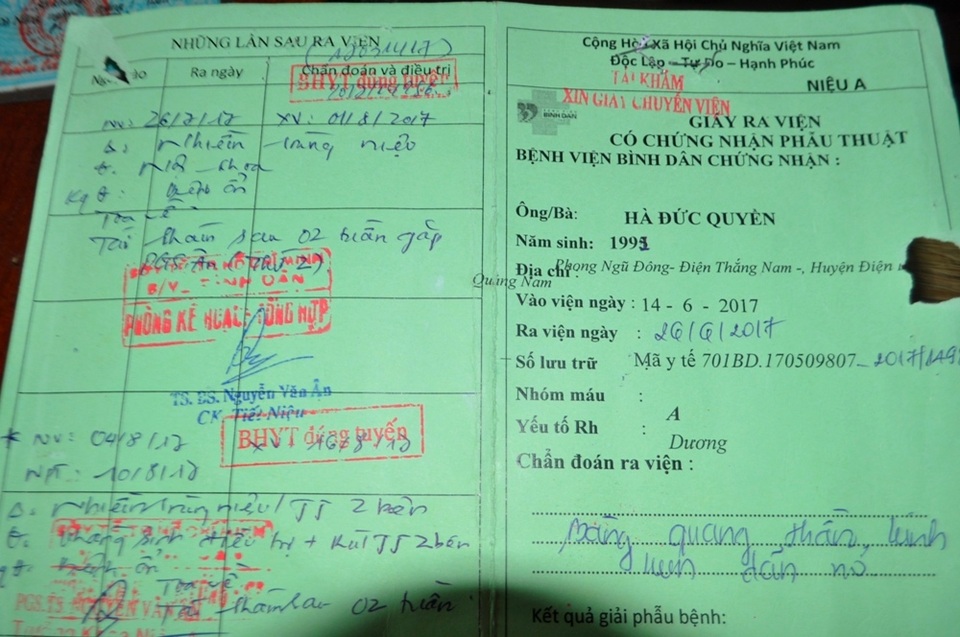 NHỮNG LẦN SAU RA VIỆN
Ra ngày
Chẩn đoán và điều trị
BHYT đúng tuyến
NV: 26/7/17 XV: 01/8/2017
Δ: Nhiễm trùng niệu
Kq
Tái khám sau 02 tuần gặp
B/V BÌNH DÂN
PHÒNG KẾ HOẠCH TỔNG HỢP
TS. BS. Nguyễn Văn Ân
CK Tiết Niệu
BHYT đúng tuyến
* NV: 04/8/17
10/8/17
Δ: Nhiễm trùng niệu / JJ 2 bên
kháng sinh điều trị + Rút JJ 2 bên
Tái khám sau 02 tuần
PGS.TS NGUYỄN VĂN ÂN
Cộng Hòa Xã Hội Chủ Nghĩa Việt Nam
Độc Lập – Tự Do – Hạnh Phúc
TÁI KHÁM
NIỆU A
XIN GIẤY CHUYỂN VIỆN
BINH DAN
GIẤY RA VIỆN
CÓ CHỨNG NHẬN PHẪU THUẬT
BỆNH VIỆN BÌNH DÂN CHỨNG NHẬN :
Ông/Bà: HÀ ĐỨC QUYỀN
Năm sinh: 1991
Địa chỉ : Phong Ngũ Đông- Điện Thắng Nam -, Huyện Điện
Quảng Nam
Vào viện ngày : 14 - 6 - 2017
Ra viện ngày : 26/6/2017
Số lưu trữ Mã y tế 701BD.170509807
Nhóm máu : A
Yếu tố Rh : Dương
Chẩn đoán ra viện :
Bàng quang thần kinh
Kết quả giải phẫu bệnh: